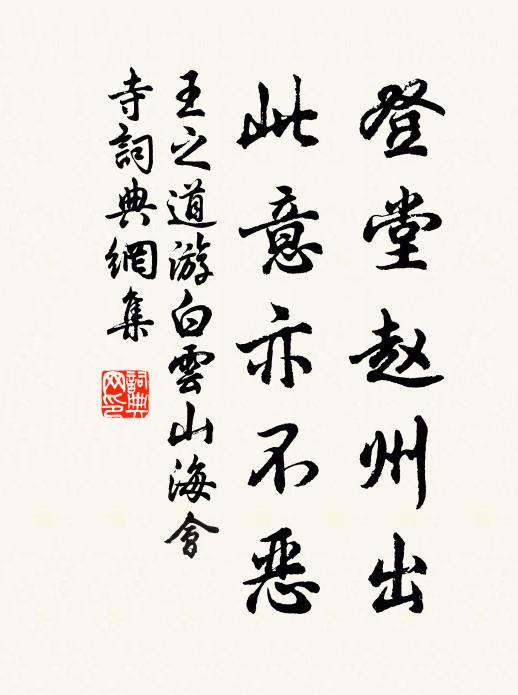 登堂赵州出
此意亦不恶
王之道游白雲山海會
寺詞典網集
詞典网印